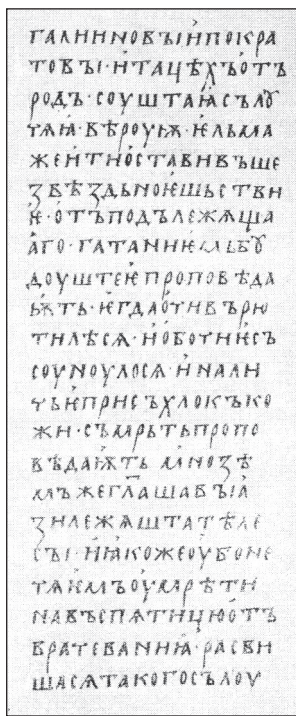 ГАЛИИНОВЪІѝПОКРА
ТОВЪІ·ѝТАЦѢХЪОТЪ
РОДЪ·СОУШТАꙖСЪЛꙊ
ЧАꙖ·ВѢРОУѬ·ѤЛЬМА
ЖЕѝТИОСТАВИВЪШЕ
ЗВѢЗДЬНОѤШЬСТВИ
Ѥ·ОТЪПОДЪЛЕЖѦЩА
АГО·ГАТАНИѤ
ДОУШТЕѤПРОПОВѢДА
ѬТЬ·ѤГДАОЧИВЪРЮ
ТИЛѢСѦ·ѝОБОЧИѤСЪ
СОУНОУЛОСѦ·ѝНАЛИ
ЧЬѤПРИСЪХЛОКЪКО
ЖИ·СЪМРЬТЬПРОПО
ВѢДАѬТЬ МНОЗѢ
МЪЖЕГЛАШАВЪІꙖ
ЗИЛЕЖѦШТАТѢЛЕ
СЪІ·ѝꙖКОЖЕОУБОНЕ
ЧѦꙖМЪОУМРѢТИ
НАВЪСПѦТИЦЮОТЪ
ВРАЧЕВАНИꙖ·РАСВИ
ШАСѦТАКОГОСЪЛОУ